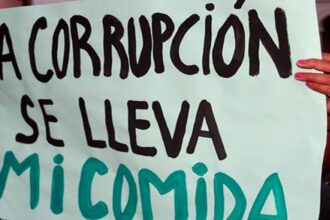 A CORRUPCIÓN
SE LLEVA
MI COMIDA